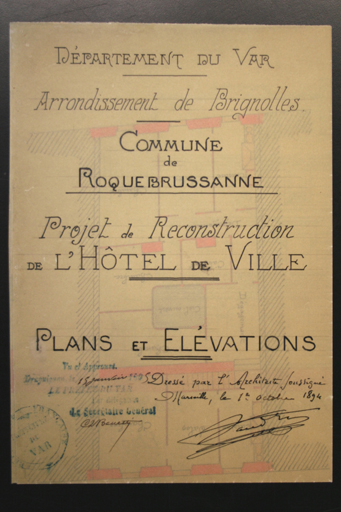 DÉPARTEMENT DU VAR
Arrondissement de Brignolles.
COMMUNE
de
ROQUEBRUSSANNE
Projet de Reconstruction
DE L'HÔTEL DE VILLE
PLANS ET ELÉVATIONS
Vu et Approuvé
Draguignan, le 15 janvier 1895
Le Secrétaire Général
Dressé par l'Architecte soussigné
Marseille, le 1er octobre 1894
DU
VAR